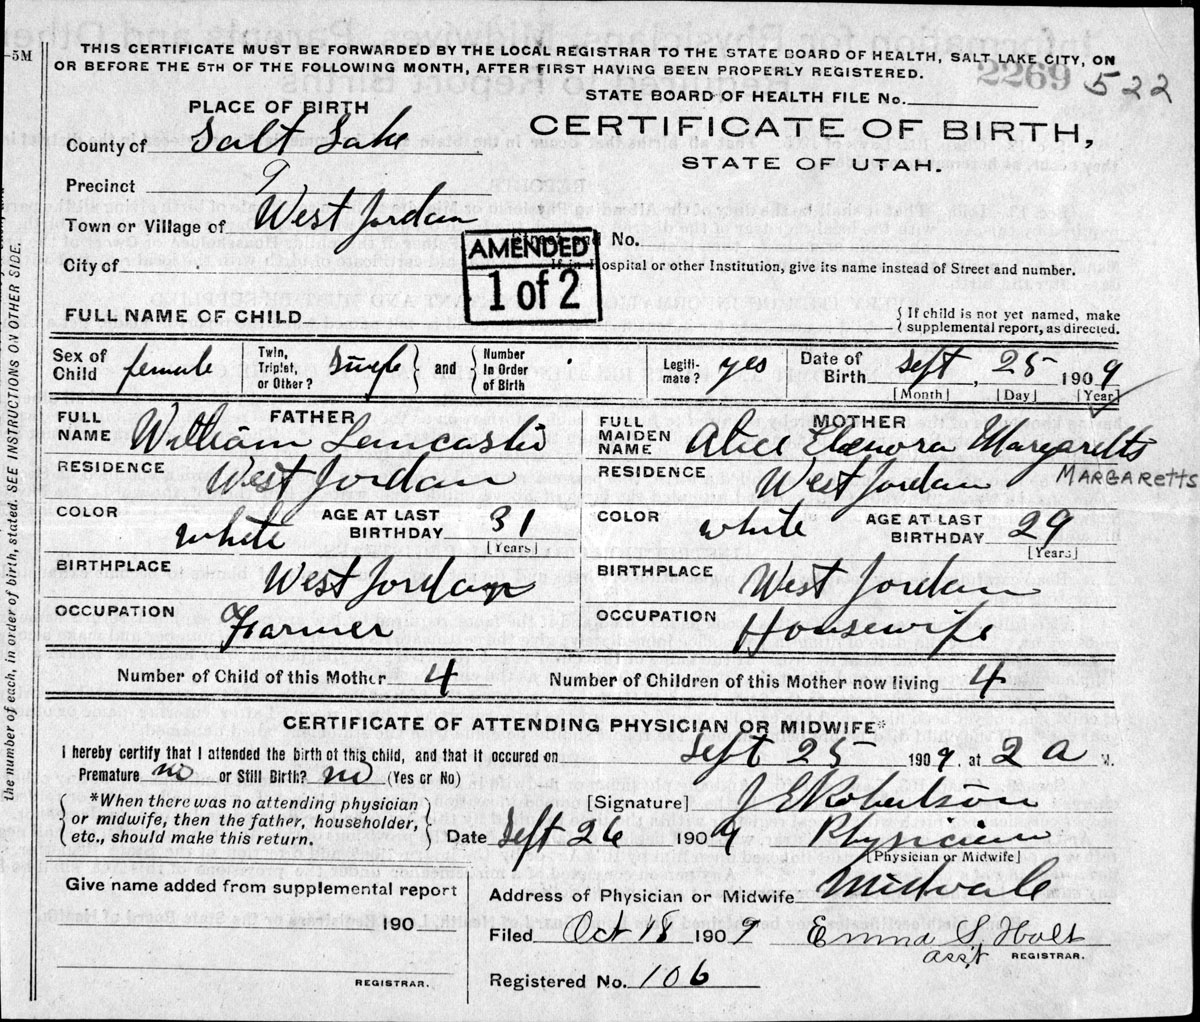 -5M
THIS CERTIFICATE MUST BE FORWARDED BY THE LOCAL REGISTRAR TO THE STATE BOARD OF HEALTH, SALT LAKE CITY, ON
OR BEFORE THE 5TH OF THE FOLLOWING MONTH, AFTER FIRST HAVING BEEN PROPERLY REGISTERED.
2269 522
STATE BOARD OF HEALTH FILE No.
PLACE OF BIRTH
CERTIFICATE OF BIRTH,
STATE OF UTAH.
County of Salt Lake
Precinct
Town or Village of West Jordan
AMENDED
1 of 2
and No.
City of
ospital or other Institution, give its name instead of Street and number.
FULL NAME OF CHILD
{ If child is not yet named, make
supplemental report, as directed.
Sex of Child female Twin, Triplet, or Other? Single } and { Number In Order of Birth Legiti-mate? yes Date of Birth Sept, 25 1909
[Month] [Day] [Year]
FATHER MOTHER
FULL NAME William FULL MAIDEN NAME Alice Elenora Margaretts
MARGARETTS
RESIDENCE West Jordan RESIDENCE West Jordan
COLOR white AGE AT LAST BIRTHDAY 31 [Years] COLOR white AGE AT LAST BIRTHDAY 29 [Years]
BIRTHPLACE West Jordan BIRTHPLACE West Jordan
OCCUPATION Farmer OCCUPATION Housewife
Number of Child of this Mother 4 Number of Children of this Mother now living 4
CERTIFICATE OF ATTENDING PHYSICIAN OR MIDWIFE*
I hereby certify that I attended the birth of this child, and that it occured on Sept 25 1909, at 2 a M.
Premature no or Still Birth? no (Yes or No)
{ *When there was no attending physician
or midwife, then the father, householder,
etc., should make this return. }
[Signature] J E Robertson
Date Sept 26 1909 Physician
[Physician or Midwife]
Give name added from supplemental report
190
REGISTRAR.
Address of Physician or Midwife Midvale
Filed Oct 18 1909 Emma S. Holt
ass't REGISTRAR.
Registered No. 106
the number of each, in order of birth, stated. SEE INSTRUCTIONS ON OTHER SIDE.